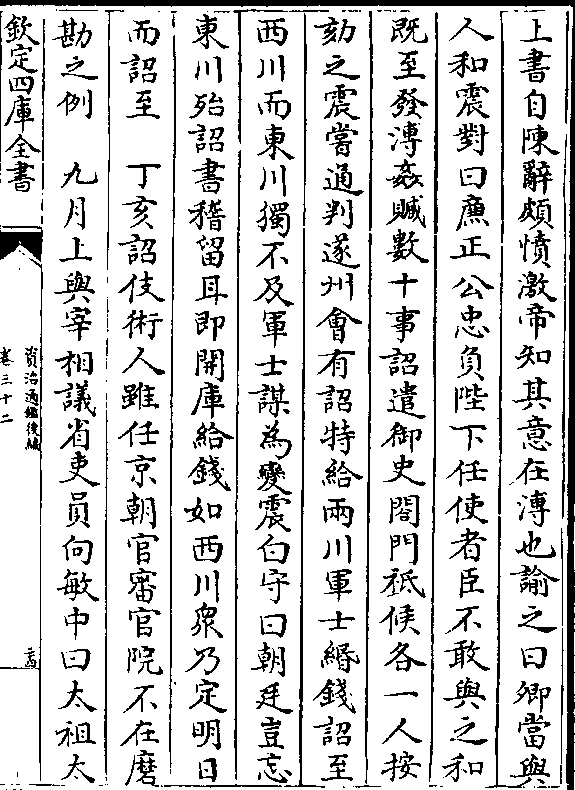 上書自陳辭頗憤激帝知其意在溥也諭之曰卿當與
人和震對曰廉正公忠負陛下任使者臣不敢與之和
既至發溥姦贓數十事詔遣御史閤門祗候各一人按
劾之震嘗通判遂州會有詔特給兩川軍士緡錢詔至
西川而東川獨不及軍士謀為變震白守曰朝廷豈忘
東川殆詔書稽留耳即開庫給錢如西川衆乃定明日
而詔至　丁亥詔伎術人雖任京朝官審官院不在磨
勘之例　九月上與宰相議省吏員向敏中曰太祖太
欽定四庫全書
資治通鑑後編
卷三十二